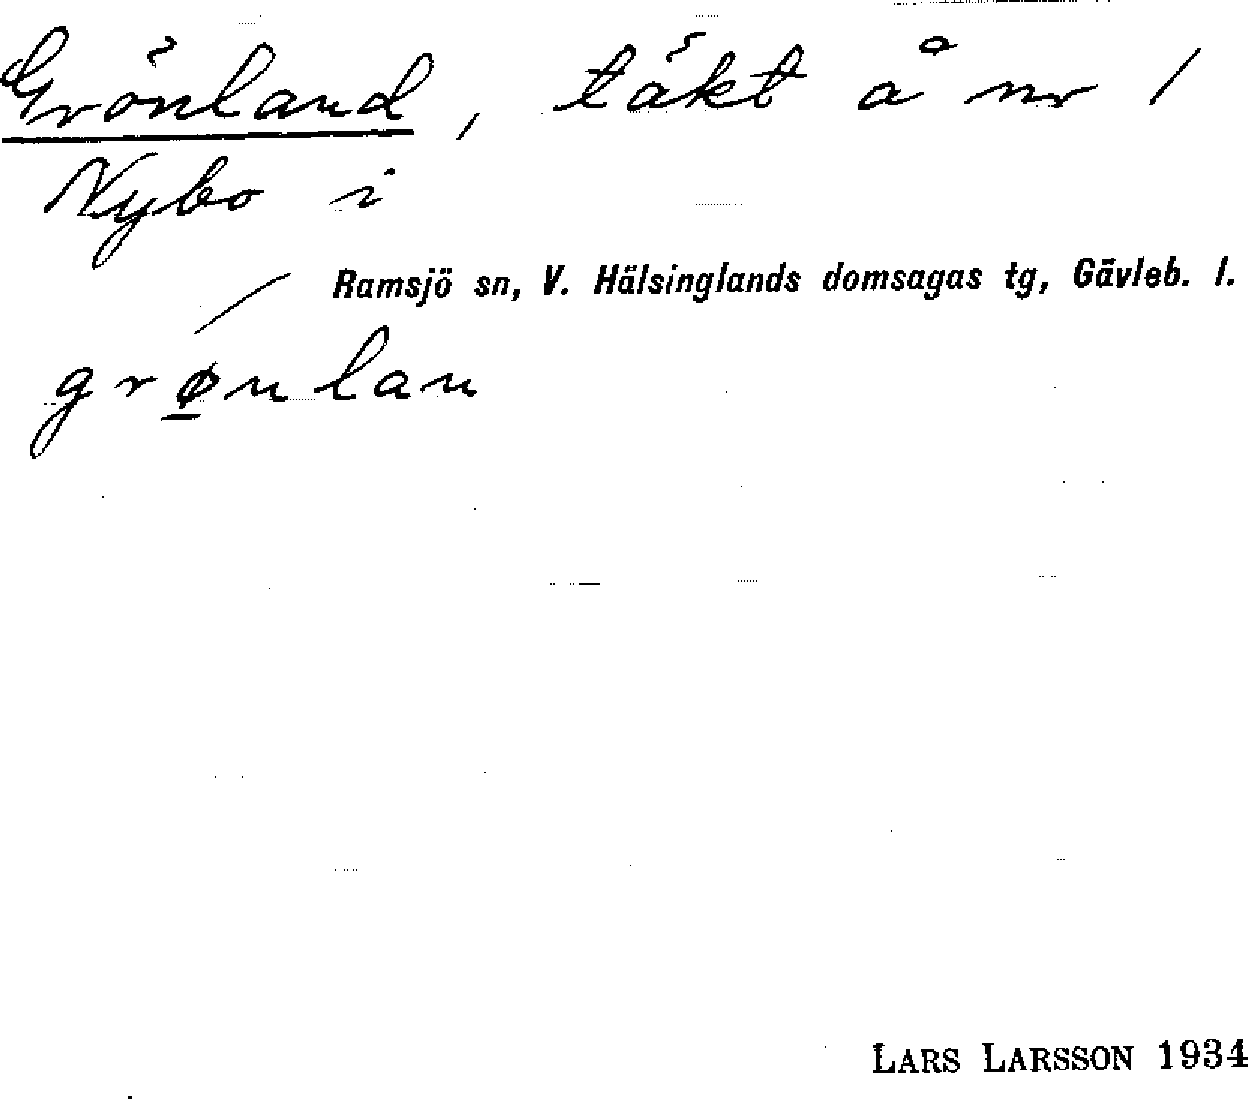 Grönland, täkt å nr 1
Nybo i
Ramsjö sn, V. Hälsinglands domsagas tg, Gävleb. l.
grø̲nlan
LARS LARSSON 1934